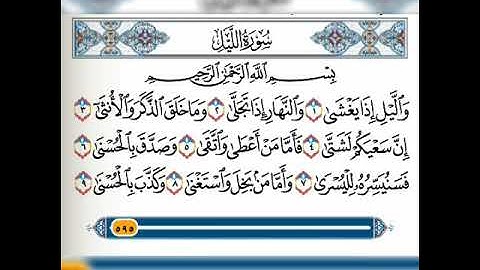 سُورَةُ اللَّيْلِ
بِسْمِ اللَّهِ الرَّحْمَٰنِ الرَّحِيمِ
وَاللَّيْلِ إِذَا يَغْشَىٰ ١ وَالنَّهَارِ إِذَا تَجَلَّىٰ ٢ وَمَا خَلَقَ الذَّكَرَ وَالْأُنثَىٰ ٣
إِنَّ سَعْيَكُمْ لَشَتَّىٰ ٤ فَأَمَّا مَنْ أَعْطَىٰ وَاتَّقَىٰ ٥ وَصَدَّقَ بِالْحُسْنَىٰ ٦
فَسَنُيَسِّرُهُ لِلْيُسْرَىٰ ٧ وَأَمَّا مَنْ بَخِلَ وَاسْتَغْنَىٰ ٨ وَكَذَّبَ بِالْحُسْنَىٰ ٩
٥٩٥